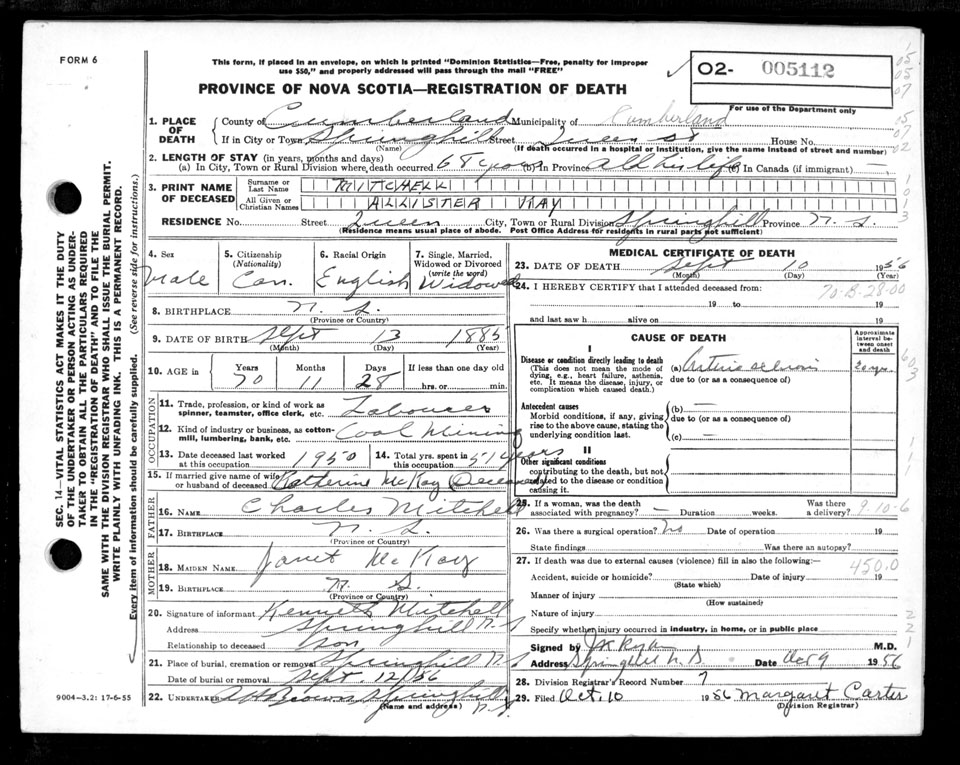 FORM 6
This form, if placed in an envelope, on which is printed "Dominion Statistics—Free, penalty for improper
use $50," and properly addressed will pass through the mail "FREE"
O2- 005112
For use of the Department only
PROVINCE OF NOVA SCOTIA—REGISTRATION OF DEATH
1. PLACE OF DEATH
County of Cumberland Municipality of Cumberland
If in City or Town Springhill Street Queen St House No.
(Name) (If death occurred in a hospital or institution, give the name instead of street and number)
2. LENGTH OF STAY (in years, months and days)
(a) In City, Town or Rural Division where death occurred 68 years (b) In Province All his life (c) In Canada (if immigrant)
3. PRINT NAME OF DECEASED
Surname or Last Name MITCHELL
All Given or Christian Names ALLISTER RAY
RESIDENCE No. Street Queen City, Town or Rural Division Springhill Province N. S.
(Residence means usual place of abode. Post Office Address for residents in rural parts not sufficient)
4. Sex Male
5. Citizenship (Nationality) Can.
6. Racial Origin English
7. Single, Married, Widowed or Divorced (write the word) Widowed
8. BIRTHPLACE N. S.
(Province or Country)
9. DATE OF BIRTH Sept 13 1885
(Month) (Day) (Year)
10. AGE in Years 70 Months 11 Days 28 If less than one day old
hrs. or min.
OCCUPATION
11. Trade, profession, or kind of work as
spinner, teamster, office clerk, etc. Labourer
12. Kind of industry or business, as cotton-
mill, lumbering, bank, etc. Coal Mining
13. Date deceased last worked
at this occupation 1950
14. Total yrs. spent in
this occupation 51 years
15. If married give name of wife
or husband of deceased Katherine McKay Deceased
FATHER
16. Name Charles Mitchell
17. Birthplace N. S.
(Province or Country)
MOTHER
18. Maiden Name Janet McKay
19. Birthplace N. S.
(Province or Country)
20. Signature of informant Kenneth Mitchell
Address Springhill N. S
Relationship to deceased son
21. Place of burial, cremation or removal Springhill N. S
Date of burial or removal Sept 12/56
22. Undertaker Brown Springhill
(Name and address) N. S.
MEDICAL CERTIFICATE OF DEATH
23. DATE OF DEATH Sept 10 1956
(Month) (Day) (Year)
24. I HEREBY CERTIFY that I attended deceased from:
19 to 19
and last saw h alive on 19
CAUSE OF DEATH
Approximate interval between onset and death
I
Disease or condition directly leading to death
(This does not mean the mode of
dying, e.g., heart failure, asthenia,
etc. It means the disease, injury, or
complication which caused death.)
(a)
due to (or as a consequence of)
Antecedent causes
Morbid conditions, if any, giving
rise to the above cause, stating the
underlying condition last.
(b) —
due to (or as a consequence of)
(c) —
II
Other significant conditions
contributing to the death, but not
related to the disease or condition
causing it.
25. If a woman, was the death
associated with pregnancy? — Duration weeks. Was there
a delivery? 9.10-6
26. Was there a surgical operation? No Date of operation 19
State findings Was there an autopsy?
27. If death was due to external causes (violence) fill in also the following:— 450.0
Accident, suicide or homicide? Date of injury 19
(State which)
Manner of injury
(How sustained)
Nature of injury
Specify whether injury occurred in industry, in home, or in public place
Signed by Ryan M.D.
Address Springhill N. S Date Oct 9 1956
28. Division Registrar's Record Number 7
29. Filed Oct. 10 1956 Margaret Carter
(Division Registrar)
SEC. 14—VITAL STATISTICS ACT MAKES IT THE DUTY
OF THE UNDERTAKER OR PERSON ACTING AS UNDER-
TAKER TO OBTAIN ALL THE PARTICULARS REQUIRED
IN THE "REGISTRATION OF DEATH" AND TO FILE THE
SAME WITH THE DIVISION REGISTRAR WHO SHALL ISSUE THE BURIAL PERMIT.
WRITE PLAINLY WITH UNFADING INK. THIS IS A PERMANENT RECORD.
Every item of information should be carefully supplied. (See reverse side for instructions.)
9004—3.2: 17-6-55